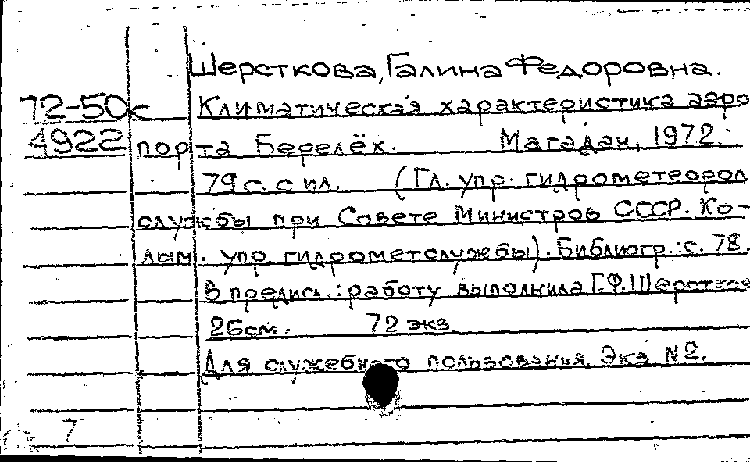 Шерсткова, Галина Федоровна.
72-50с Климатическая характеристика аэро
4922 порта Берелёх. Магадан, 1972.
79 с. с ил. (Гл. упр. гидрометеорол
службы при Совете Министров СССР. Ко-
лым. упр. гидрометслужбы). Библиогр.: с. 78.
В предисл.: работу выполнила Г.Ф. Шерсткова
26см. 72 экз
Для служебного пользования. Экз №2.
7